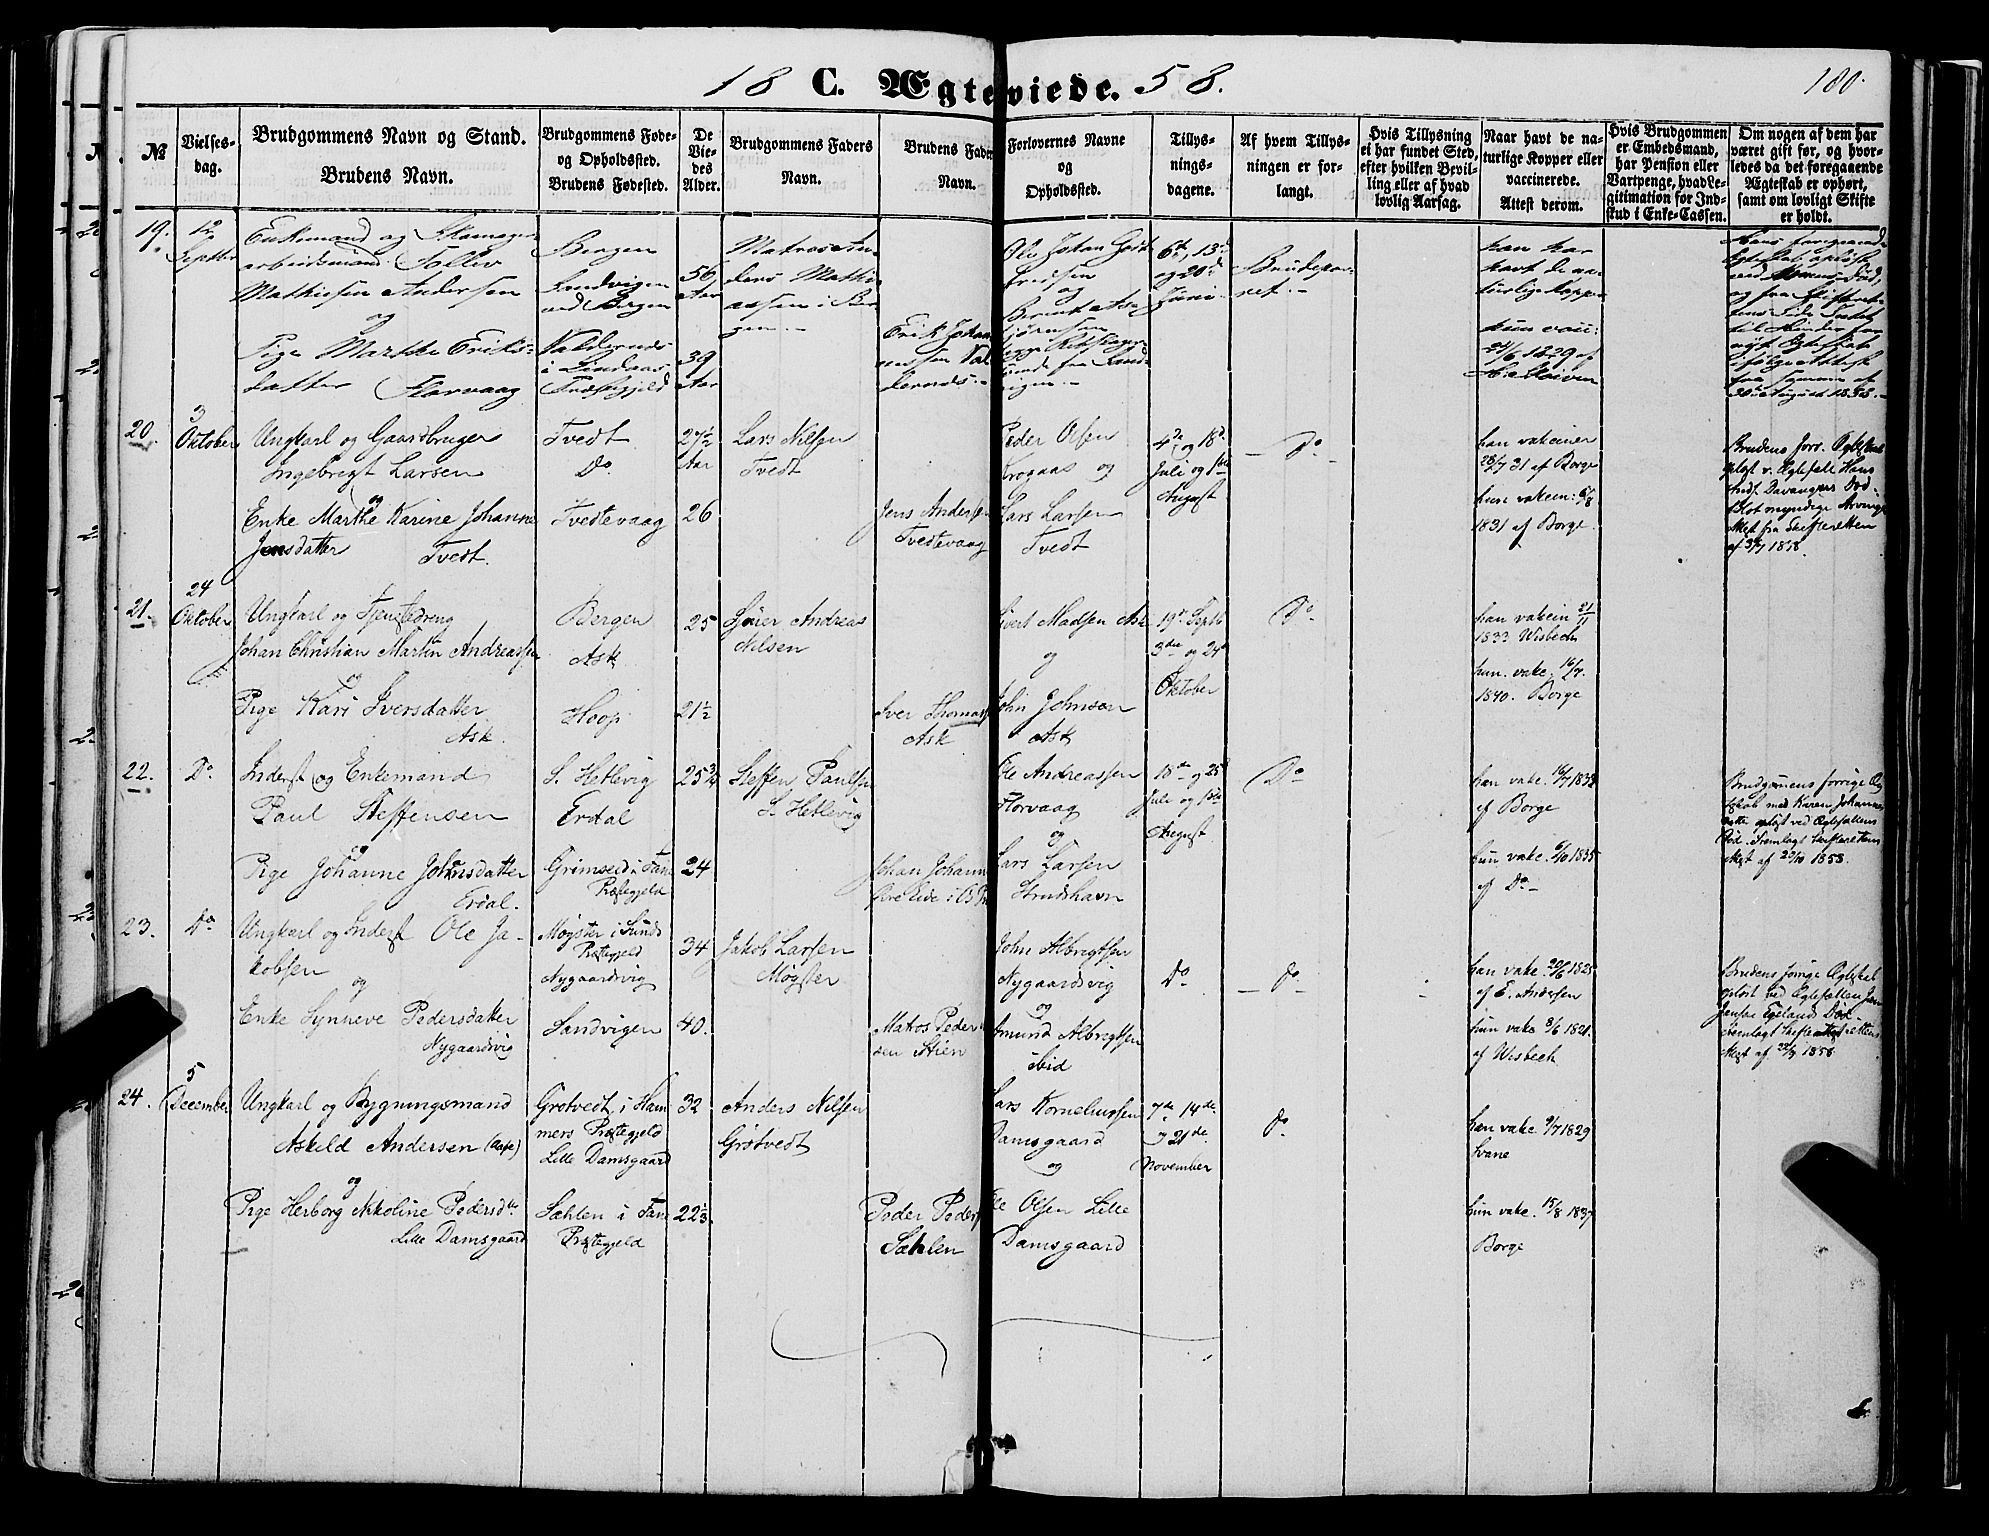 18 C. Ægteviede. 58.
180.
№
Vielses-
dag.
Brudgommens Navn og Stand.
Brudens Navn.
Brudgommens Føde-
og Opholdssted.
Brudens Fødested.
De
Vie-
des
Alder.
Brudgommens Faders
Navn.
Brudens Faders
Navn.
Forlovernes Navne
og
Opholdssted.
Tillys-
nings-
dagene.
Af hvem Tillys-
ningen er for-
langt.
Hvis Tillysning
ei har fundet Sted,
efter hvilken Bevil-
ling eller af hvad
lovlig Aarsag.
Naar havt de na-
turlige Kopper eller
vaccinerede.
Attest derom.
Hvis Brudgommen
er Embedsmand,
har Pension eller
Vartpenge, hvad Le-
gitimation for Ind-
skud i Enke-Cassen.
Om nogen af dem har
været gift før, og hvor-
ledes da det foregaaende
Ægteskab er ophørt,
samt om lovligt Skifte
er holdt.
19.
12
Septbr
Enkemand og
arbeidsmand Tollev
Mathiesen Andersen
og
Pige Marthe Eriks-
datter Florvaag
Bergen
Sandvigen
ved Bergen
i Lindaas
Præstegjeld
56
Aar
39
Aar
Matros An-
ders Mathi-
assen i Ber-
gen.
Erik Johan-
nessen
Ole Johan
og
6te, 13de
og 20de
Juni
Brudepar-
ret.
han har
havt de na-
turlige Kopper
hun vacc:
24/6 1829 af
20.
3
Oktober
Ungkarl og Gaardbruger
Ingebrigt Larsen
og
Enke Marthe Karine Johanne
Jensdatter Tvedt.
Tvedt
Do
Tvedtevaag
27½
Aar
26
Lars Nilsen
Tvedt
Jens Andersen
Tvedtevaag
Peder Olsen
Krogaas og
Lars Larsen
Tvedt
4de og 18de
Juli og 1ste
August
Do
han vakciner
28/7 31 af Borge
hun vakcin: 5/8
1831 af Borge.
Brudens forr. Ægteskab
opløst v. Ægtefelle Hans
Davangers Død
Blot myndige Arvinger
fra Skifteretten
1858.
21.
24
Oktober
Ungkarl og Tjenestedreng
Johan Christian Martin Andreassen
og
Pige Kari Iversdatter
Ask.
Bergen
Ask
Hoop
25
21½
Sjøer Andreas
Nilsen
Iver Thomas
Ask
Sivert Madsen Ask
og
John Johnson
Ask
19de Septb
3die og 24de
Oktober
Do
han vakcin 21/11
1833 Wisbech
hun vake. 16/7.
1840. Borge
22.
Do
Inderst og Enkemand
Paul Steffensen
og
Pige Johanne Johansdatter
Erdal.
S. Hetlevig
Erdal
Grimseid i Fane
Præstegjeld
25¾
24
Steffen Paulsen
S. Hetlevig
Johan Johann
Ole Andreassen
Florvaag
og
Lars Larsen
Strudshavn
18de og 25de
Juli og 1ste
August
Do
han vake. 16/7 1833
af Borge
hun vake. 6/10 1835
af Do
Brudgomens forrige Æg-
teskab med Karen Johannes-
datter opløst ved Ægtefællens
Død. Fremlagt Skifterettens
Attest af 23/10 1858.
23.
Do
Ungkarl og Inderst Ole Ja-
kobsen
og
Enke Synneve Pedersdatter
Nygaardsvig
Møgster i Sunds
Præstegjeld
Nygaardsvig
Sandvigen
34
40.
Jakob Larsen
Møgster
Matros Peder
sen Stien
John Albregtsen
Nygaardsvig
og
Amund Albregtsen
ibid
Do
Do
han vake. 20/6 1825
af E. Andersen
hun vake 3/6 1821.
af Wisbech
Brudens forrige Ægteskab
opløst ved Ægtefællen Jens
Jensen Død.
Fremlagt Skifterettens
Attest af 1858
24.
5
December
Ungkarl og Bygningsmand
Askild Andersen
og
Pige Herborg Nikoline Pedersdtr
Lille Damsgaard
Grotvedt i Ham-
mers Præstegjeld
Lille Damsgaard
Sæhlen i Fane
Præstegjeld
32
22⅓
Anders Nilsen
Grotvedt
Peder Peders
Sæhlen
Lars Korneliussen
Damsgaard
og
Ole Olsen Lille
Damsgaard
7de 14de
og 21de
November
Do
han vake. 9/7 1829
Svane
hun vake. 15/8 1837
Borge